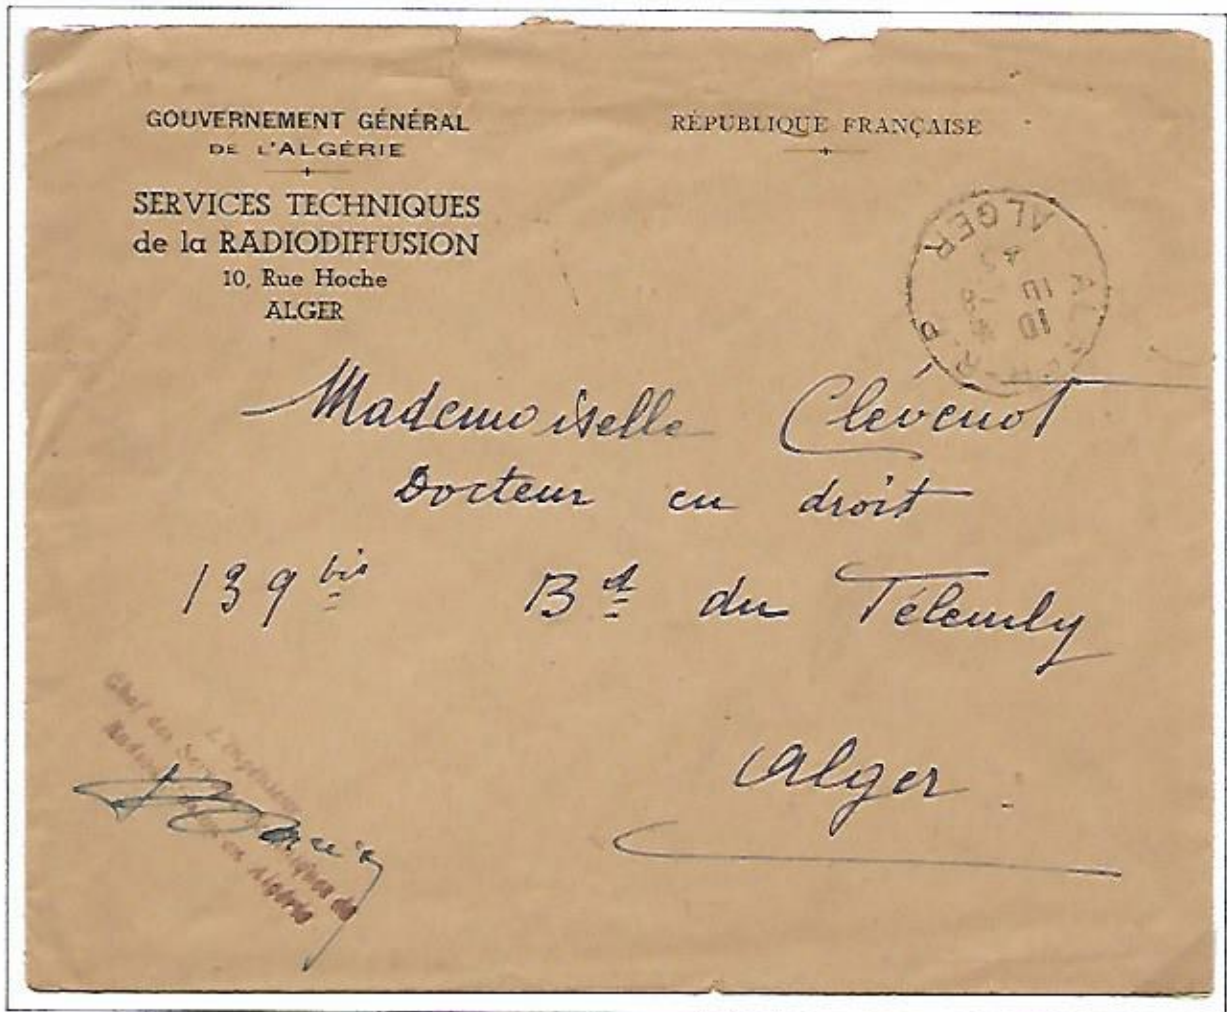 GOUVERNEMENT GÉNÉRAL
DE L'ALGÉRIE
SERVICES TECHNIQUES
de la RADIODIFFUSION
10, Rue Hoche
ALGER
RÉPUBLIQUE FRANÇAISE
ALGER
10
10
Mademoiselle Clévenot
Docteur en droit
139 bis Bd du Télemly
Alger
L'Ingénieur
Chef des
en Algérie